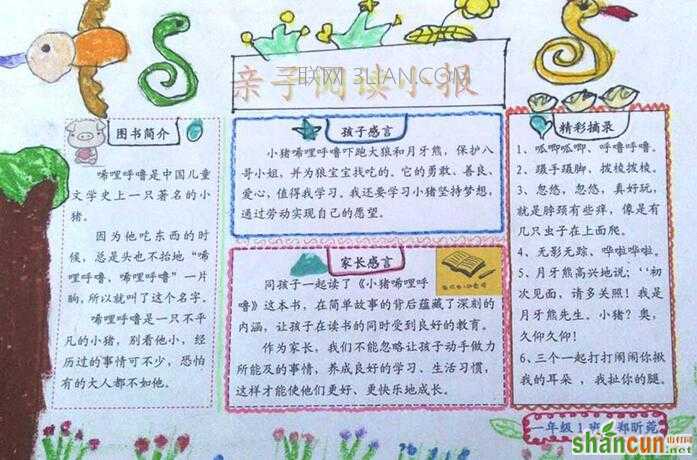 亲子阅读小报
三联网 3LIAN.COM
图书简介
唏哩呼噜是中国儿童
文学史上一只著名的小
猪。
因为他吃东西的时
候，总是头也不抬地“唏
哩呼噜，唏哩呼噜”一片
响，所以就叫了这个名字。
唏哩呼噜是一只不平
凡的小猪，别看他小，经
历过的事情可不少，恐怕
有的大人都不如他。
孩子感言
小猪唏哩呼噜吓跑大狼和月牙熊，保护八
哥小姐，并为狼宝宝找吃的。它的勇敢、善良、
爱心，值得我学习。我还要学习小猪坚持梦想，
通过劳动实现自己的愿望。
家长感言
同孩子一起读了《小猪唏哩呼
噜》这本书，在简单故事的背后蕴藏了深刻的
内涵，让孩子在读书的同时受到良好的教育。
作为家长，我们不能忽略让孩子动手做力
所能及的事情，养成良好的学习、生活习惯，
这样才能使他们更好、更快乐地成长。
精彩摘录
1、呱唧呱唧、呼噜呼噜。
2、蹑手蹑脚、拨棱拨棱。
3、忽悠，忽悠，真好玩，
就是脖颈有些痒，像是有
几只虫子在上面爬。
4、无影无踪、哗啦哗啦。
5、月牙熊高兴地说；‘‘初
次见面，请多关照！我是
月牙熊先生。小猪？奥，
久仰久仰！
6、三个一起打打闹闹你揪
我的耳朵 ，我扯你的腿。
一年级1班 郑昕菀
shancun.net
山村网